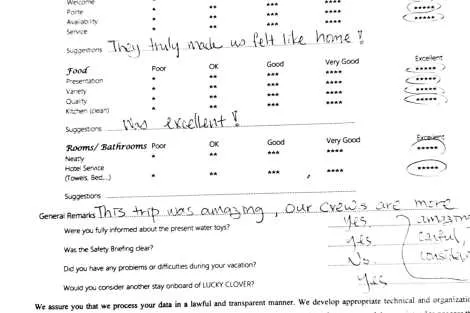 Welcome * ** *** ****
Polite * ** *** **** *****
Availability * ** *** **** *****
Service
Suggestions They truly made us felt like home!
Food Poor OK Good Very Good Excellent
Presentation * ** *** **** *****
Variety * ** *** **** *****
Quality * ** *** **** *****
Kitchen (clean) * ** *** **** *****
Suggestions Was excellent!
Rooms/ Bathrooms Poor OK Good Very Good Excellent
Neatly * ** *** **** *****
Hotel Service * ** *** **** *****
(Towels, Bed...)
Suggestions
General Remarks This trip was amazing, Our Crew's are more
Were you fully informed about the present water toys? Yes
Was the Safety Briefing clear? Yes careful,
Did you have any problems or difficulties during your vacation? No
Would you consider another stay onboard of LUCKY CLOVER? Yes
We assure you that we process your data in a lawful and transparent manner. We develop appropriate technical and organizatio